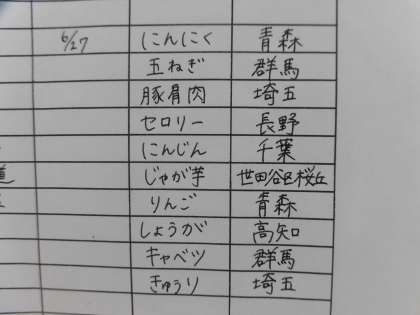 6/27 にんにく 青森
五ねぎ 群馬
豚肩肉 埼五
セロリー 長野
にんじん 千葉
じゃが芋 世田谷区桜丘
りんご 青森
しょうが 高知
キャベツ 群馬
きゅうり 埼五